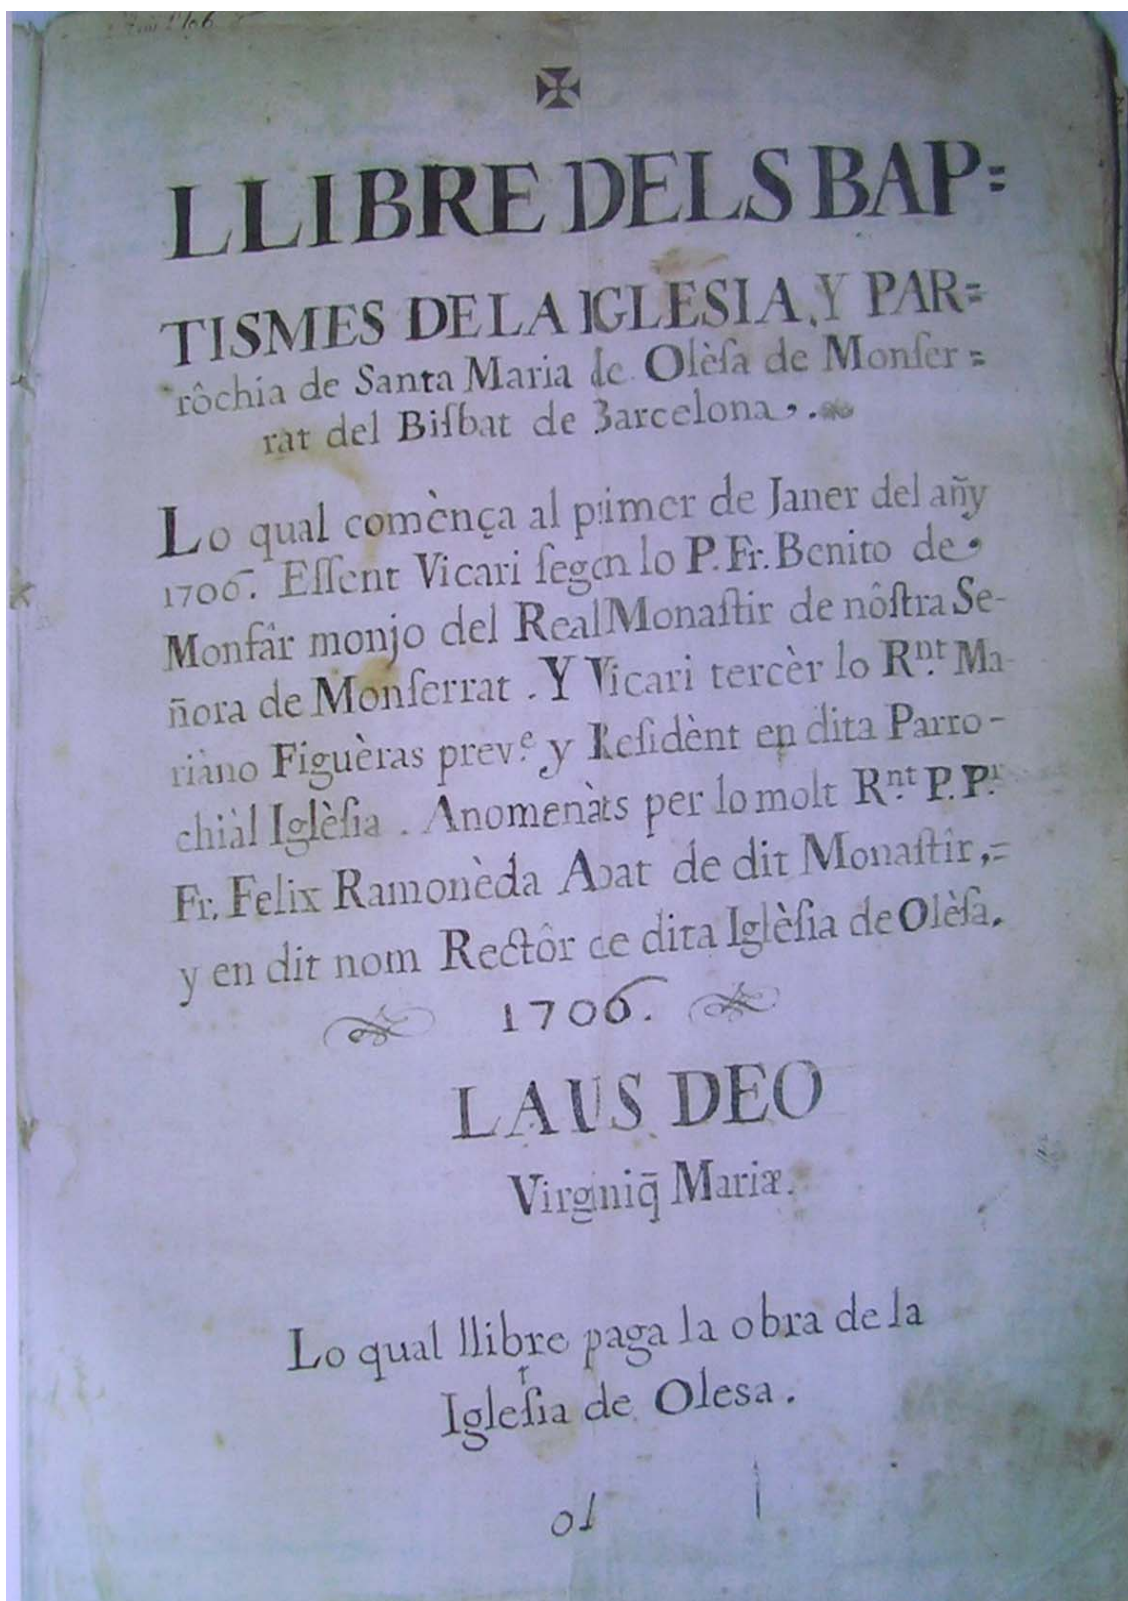 ✠
LLIBRE DELS BAP=
TISMES DE LA IGLESIA, Y PAR=
rôchia de Santa Maria de Olèſa de Monſer=
rat del Biſbat de Barcelona,.
Lo qual comènça al primer de Janer del añy
1706. Eſſent Vicari ſegon lo P. Fr. Benito de
Monfâr monjo del Real Monaſtir de nôſtra Se-
ñora de Monſerrat. Y Vicari tercèr lo Rnt. Ma-
riàno Figuèras prev.e y Reſidènt en dita Parro-
chiàl Iglèſia. Anomenàts per lo molt Rnt. P. Pr.
Fr. Felix Ramonèda Abat de dit Monaſtir,=
y en dit nom Rectôr de dita Iglèſia de Olèſa.
1706.
LAUS DEO
Virginiq̃ Mariæ.
Lo qual llibre paga la obra de la
Igleſia de Olesa.